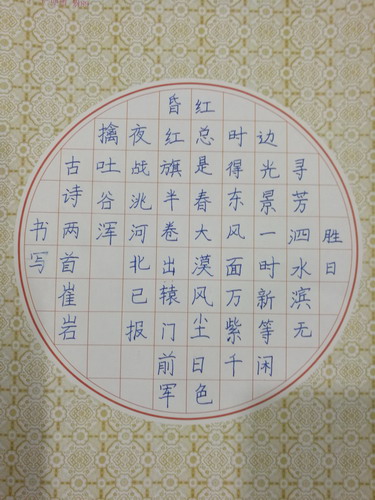 胜日
寻芳泗水滨无
边光景一时新等闲
时得东风面万紫千
红总是春大漠风尘日色
昏红旗半卷出辕门前军
夜战洮河北已报
擒吐谷浑
古诗两首崔岩
书写